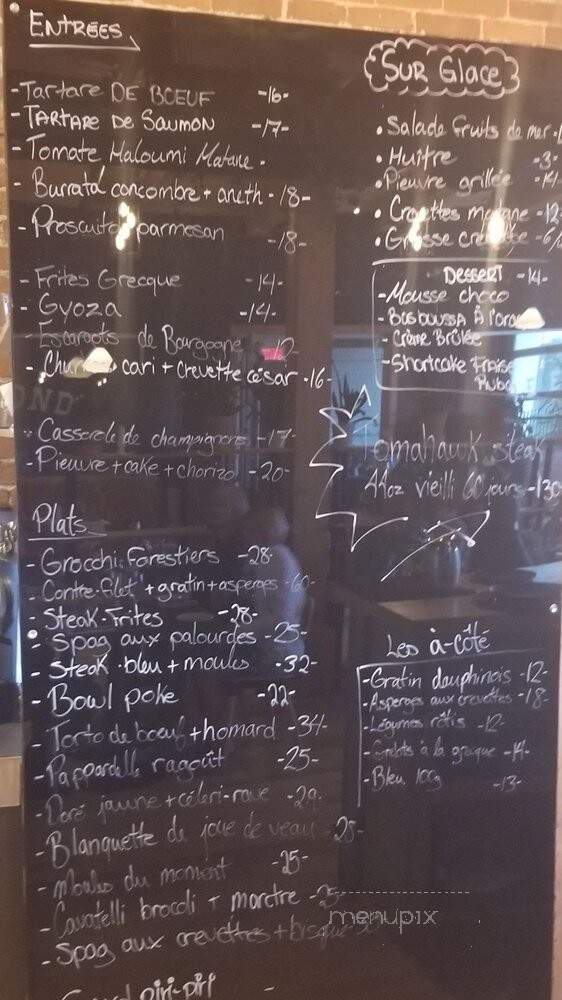 ENTRÉES
-Tartare DE BOEUF -16-
-TARTARE DE SAUMON -17-
-Tomate Haloumi -
-Burrata concombre + aneth -18-
-Proscuito parmesan -18-
-Frites Grecque -14-
-Gyoza -14-
-Escargots de Bourgogne -12
- cari + crevette césar -16-
-Casserole de champignons -17-
-Pieuvre + cake + chorizo -20-
Plats
-Grocchi Forestiers -28-
-Contre-filet + gratin + asperges -60-
-Steak-Frites -28-
-Spag aux palourdes -25-
-Steak-bleu + moules -32-
-Bowl poke -22-
-Torto de boeuf + homard -34-
-Pappardelle ragoût -25-
-Doré jaune + céleri-rave -29-
-Blanquette de joue de veau -28-
-Moules du moment -25-
-Cavatelli brocoli + -25-
-Spag aux crevettes + bisque
piri-piri -
SUR Glace
•Salade fruits de mer
•Huître -3-
•Pieuvre grillée -14-
•Crevettes -12-
•Grosse crevette
DESSERT -14-
-Mousse choco
-Basboussa À l'
-Crème Brûlée
-Shortcake Fraise
Tomahawk steak
44oz vieilli 60 jours -130
Les à-côté
-Gratin dauphinois -12-
-Asperges aux crevettes -18
-Légumes rôtis -12-
- à la grecque -14-
-Bleu 100g -13-
menupix